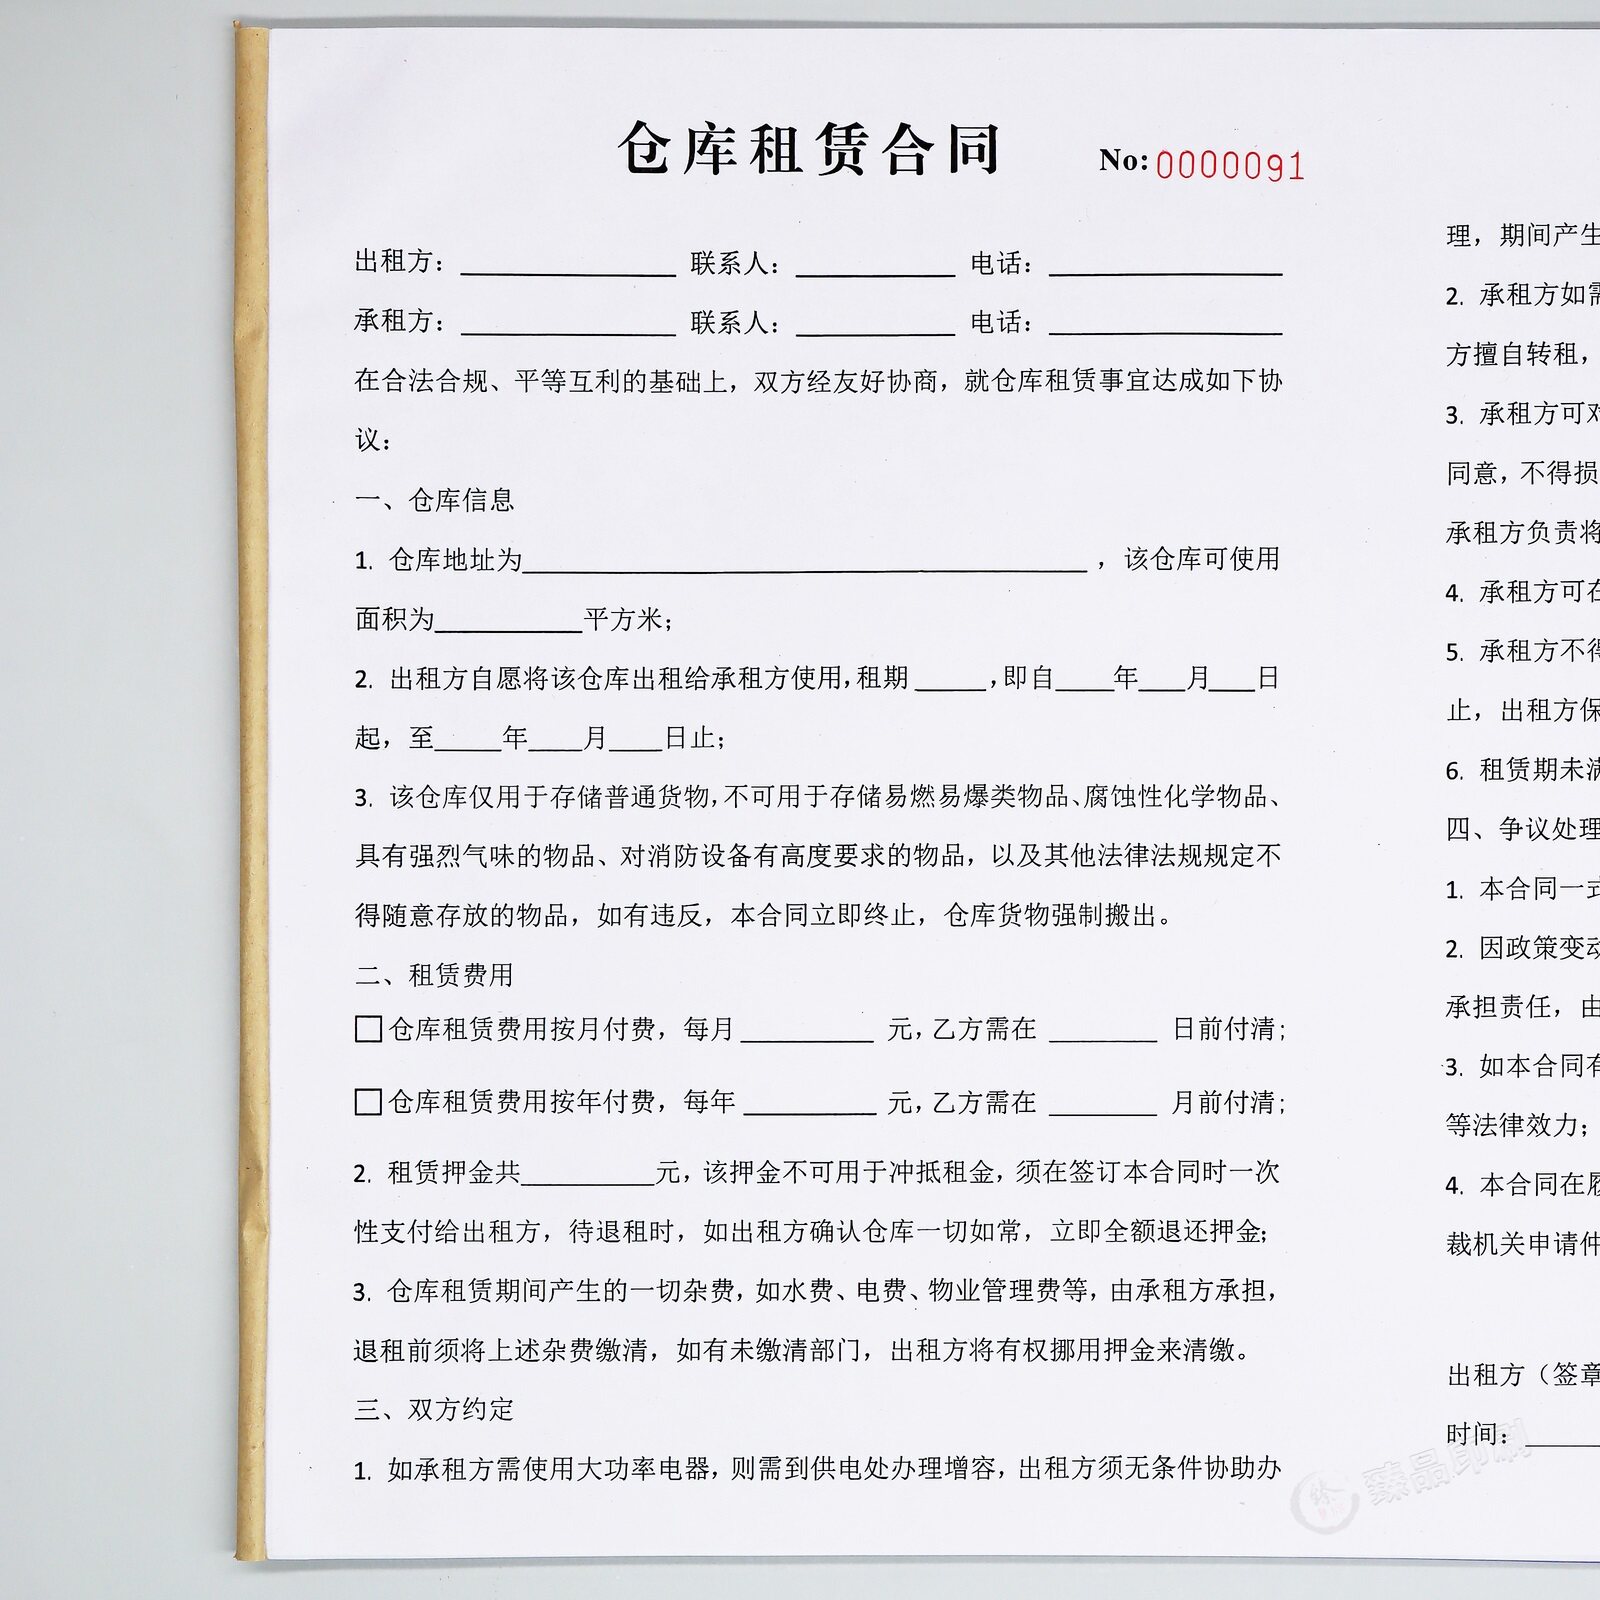 仓库租赁合同 No: 0000091
出租方：__________ 联系人：__________ 电话：__________
承租方：__________ 联系人：__________ 电话：__________
在合法合规、平等互利的基础上，双方经友好协商，就仓库租赁事宜达成如下协
议：
一、仓库信息
1. 仓库地址为__________，该仓库可使用
面积为__________平方米；
2. 出租方自愿将该仓库出租给承租方使用，租期_____，即自____年___月___日
起，至____年____月____日止；
3. 该仓库仅用于存储普通货物，不可用于存储易燃易爆类物品、腐蚀性化学物品、
具有强烈气味的物品、对消防设备有高度要求的物品，以及其他法律法规规定不
得随意存放的物品，如有违反，本合同立即终止，仓库货物强制搬出。
二、租赁费用
□仓库租赁费用按月付费，每月__________元，乙方需在________日前付清；
□仓库租赁费用按年付费，每年__________元，乙方需在________月前付清；
2. 租赁押金共__________元，该押金不可用于冲抵租金，须在签订本合同时一次
性支付给出租方，待退租时，如出租方确认仓库一切如常，立即全额退还押金；
3. 仓库租赁期间产生的一切杂费，如水费、电费、物业管理费等，由承租方承担，
退租前须将上述杂费缴清，如有未缴清部门，出租方将有权挪用押金来清缴。
三、双方约定
1. 如承租方需使用大功率电器，则需到供电处办理增容，出租方须无条件协助办
理，期间产生
2. 承租方如需
方擅自转租，
3. 承租方可对
同意，不得损
承租方负责将
4. 承租方可在
5. 承租方不得
止，出租方保
6. 租赁期未满
四、争议处理
1. 本合同一式
2. 因政策变动
承担责任，由
3. 如本合同有
等法律效力；
4. 本合同在履
裁机关申请仲
出租方（签章
时间：____
臻品印刷